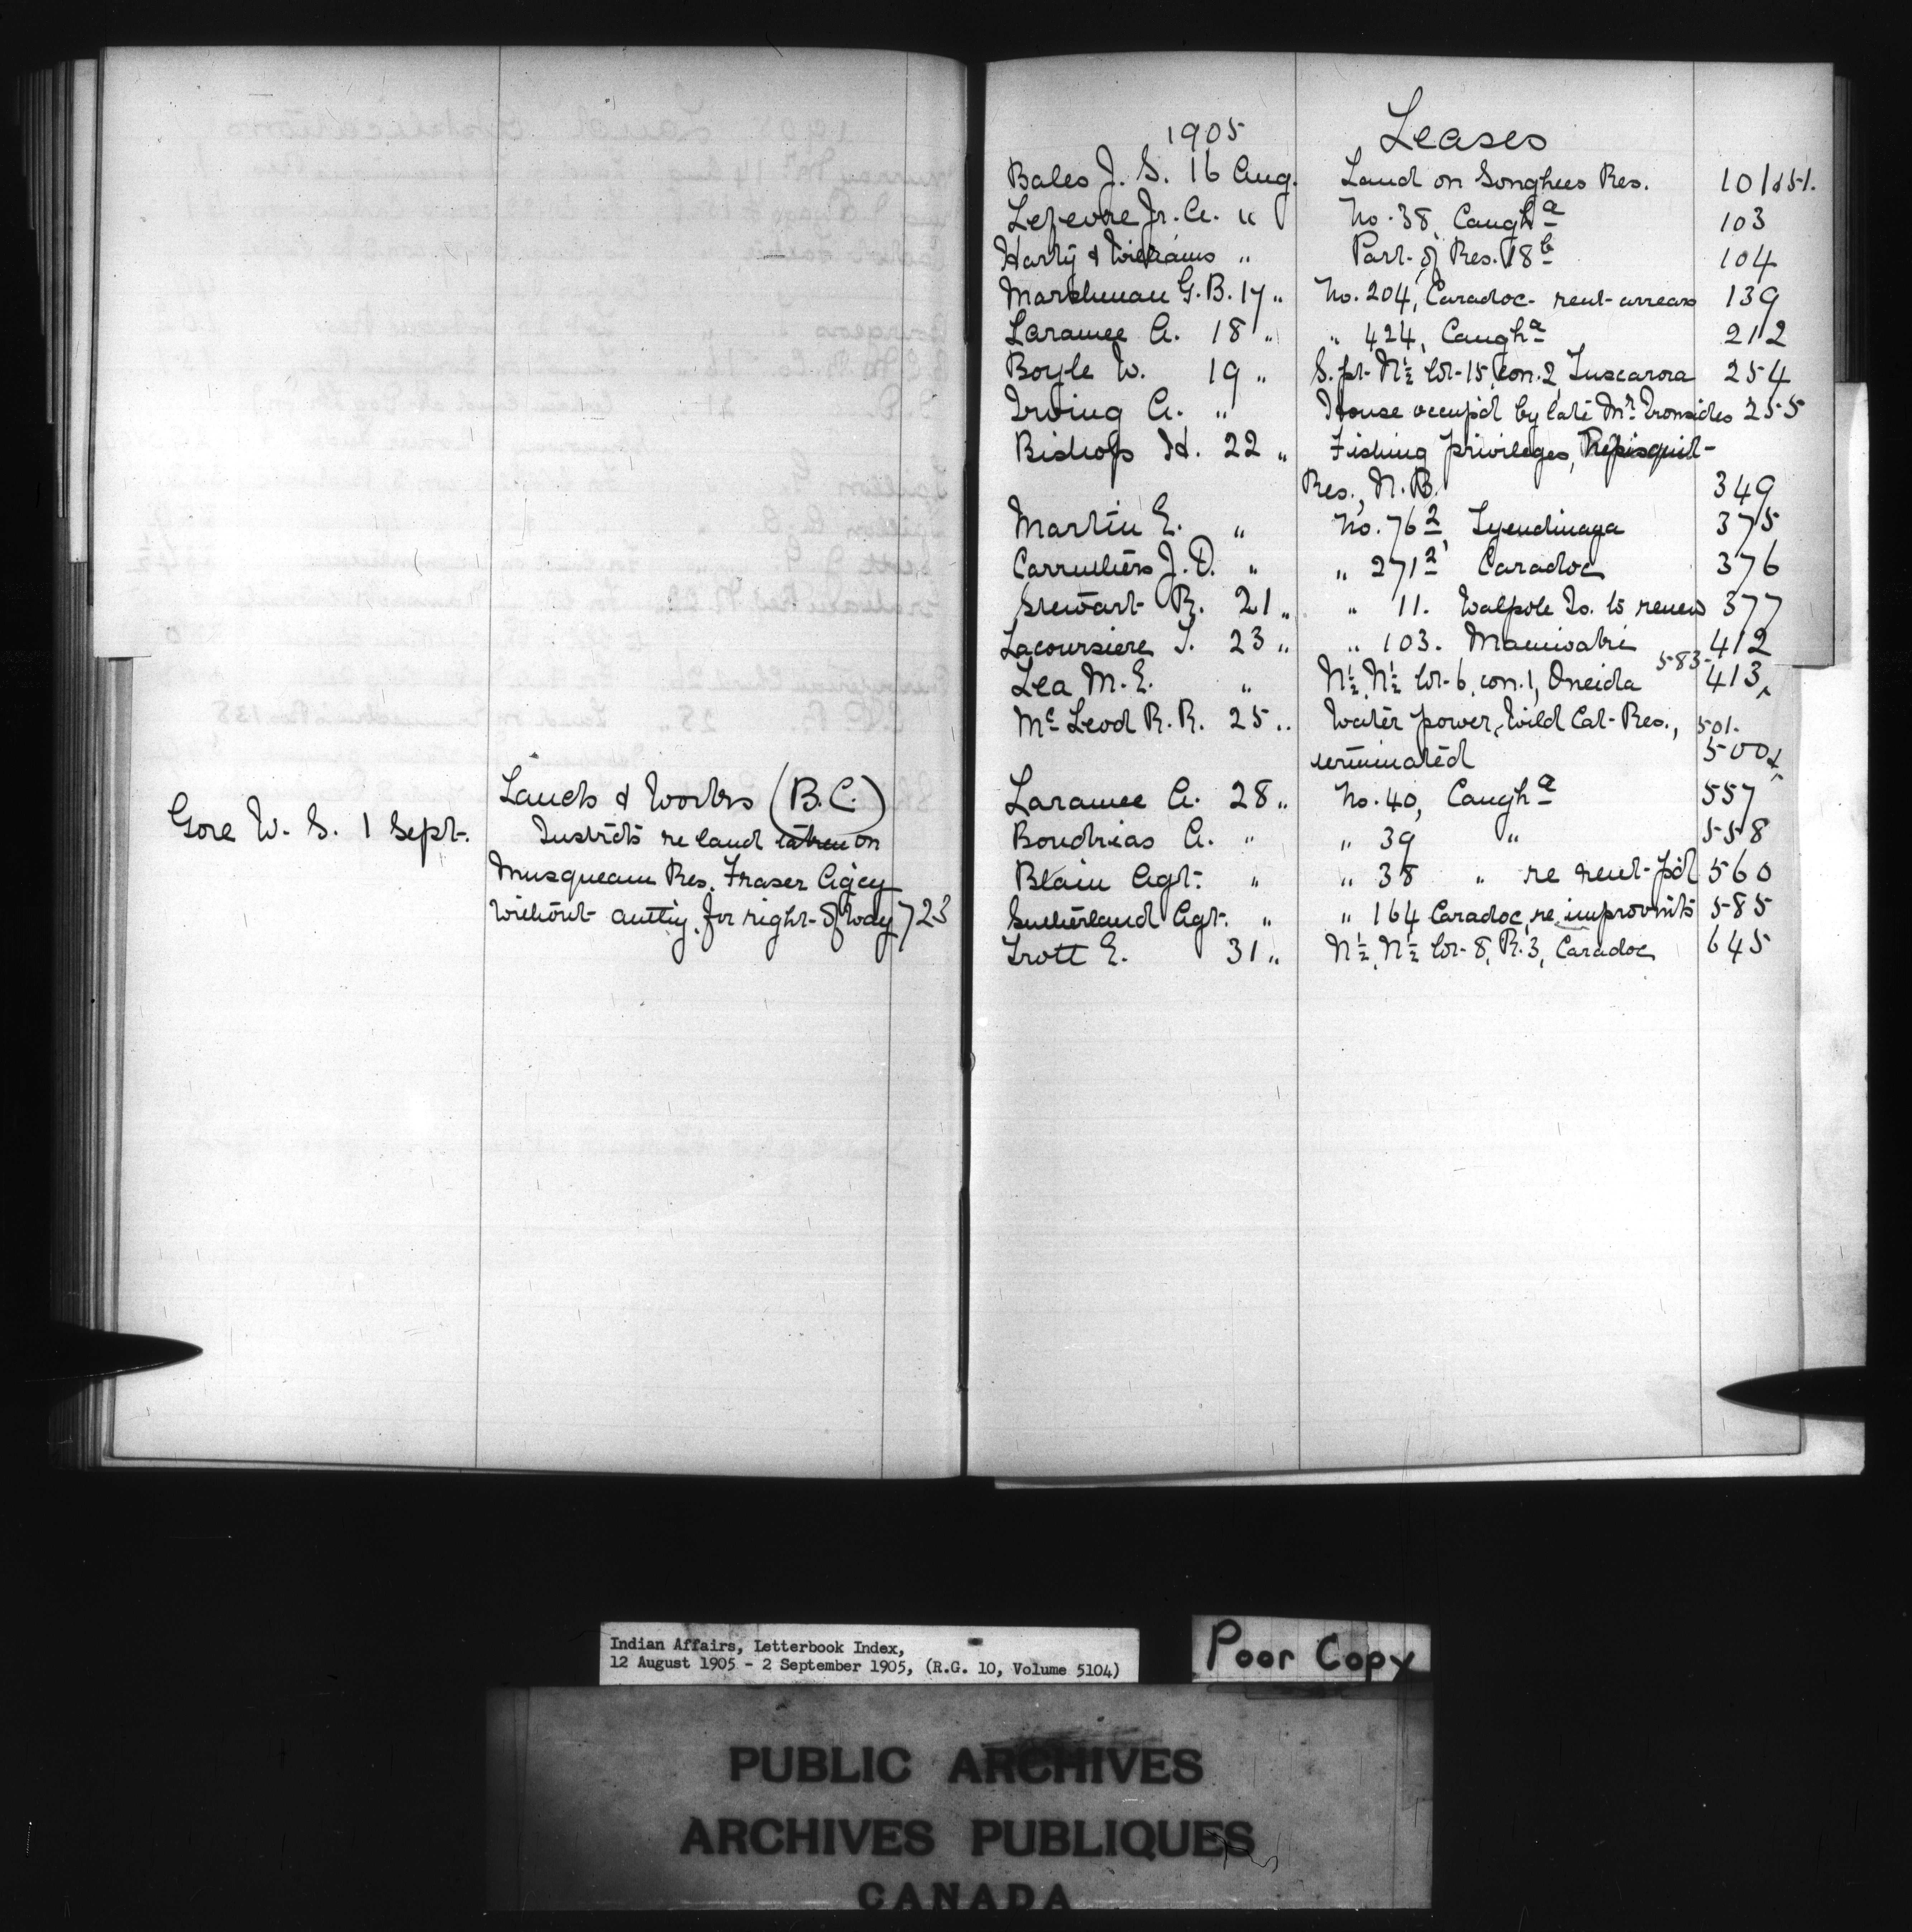 Lands & Works (B.C.)
Gore W. S. 1 Sept. Instrcts re land taken on
Musqueam Res. Fraser Agcy
without authy. for right-of way 723
1905 Leases
Bales J. S. 16 Aug. Land on Songhees Res. 101
Lefevre Jr. A. " No. 38, Caugh<sup>a</sup> 103
Harty & Williams " Part of Res. 18<sup>b</sup> 104
Marshman G. B. 17 " No. 204, Caradoc rent arrears 139
Laramee A. 18 " " 424, Caugh<sup>a</sup> 212
Boyle W. 19 " S. pt. N½ lot 15, con. 2 Tuscarora 254
Irving A. " House occup'd by late Mr. Ironsides 255
Bishop H. 22 " Fishing privileges,
Res., N.B. 349
Martin E. " No. 76², Tyendinaga 375
Carruthers J. D. " " 271² Caradoc 376
Stewart R. 21 " " 11. Walpole Is. to renew 377
Lacoursiere T. 23 " " 103. Maniwaki 412
Lea M. E. " N½, N½ lot 6, con. 1, Oneida 583 413
McLeod R. R. 25 " Water power, Wild Cat Res., 501.
terminated 500
Laramee A. 28 " No. 40, Caugh<sup>a</sup> 557
Boudrias A. " " 39 " 558
Blain Agt. " " 38 " re rent pd 560
Sutherland Agt. " " 164 Caradoc, re improvmts 585
Trott E. 31 " N½, N½ lot 8, R. 3, Caradoc 645
Indian Affairs, Letterbook Index,
12 August 1905 - 2 September 1905, (R.G. 10, Volume 5104)
Poor Copy
PUBLIC ARCHIVES
ARCHIVES PUBLIQUES
CANADA